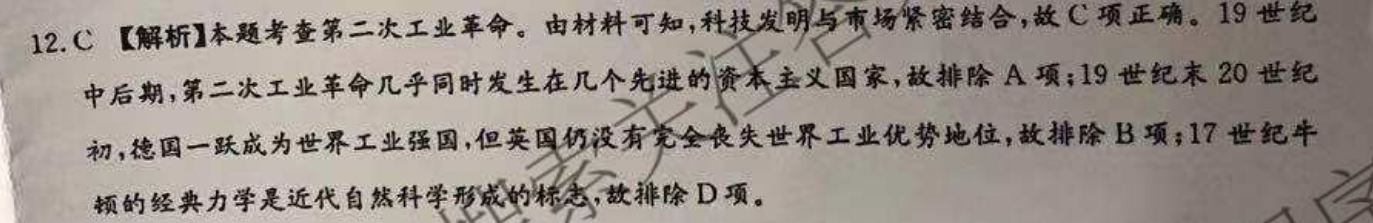 12.C 【解析】本题考查第二次工业革命。由材料可知,科技发明与市场紧密结合,故C项正确。19世纪
中后期,第二次工业革命几乎同时发生在几个先进的资本主义国家,故排除A项;19世纪末20世纪
初,德国一跃成为世界工业强国,但英国仍没有完全丧失世界工业优势地位,故排除B项;17世纪牛
顿的经典力学是近代自然科学形成的标志,故排除D项。
搜索关注答